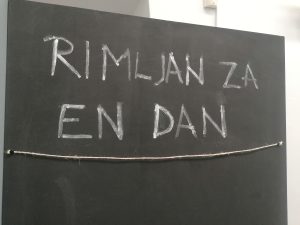 RIMLJAN ZA
EN DAN